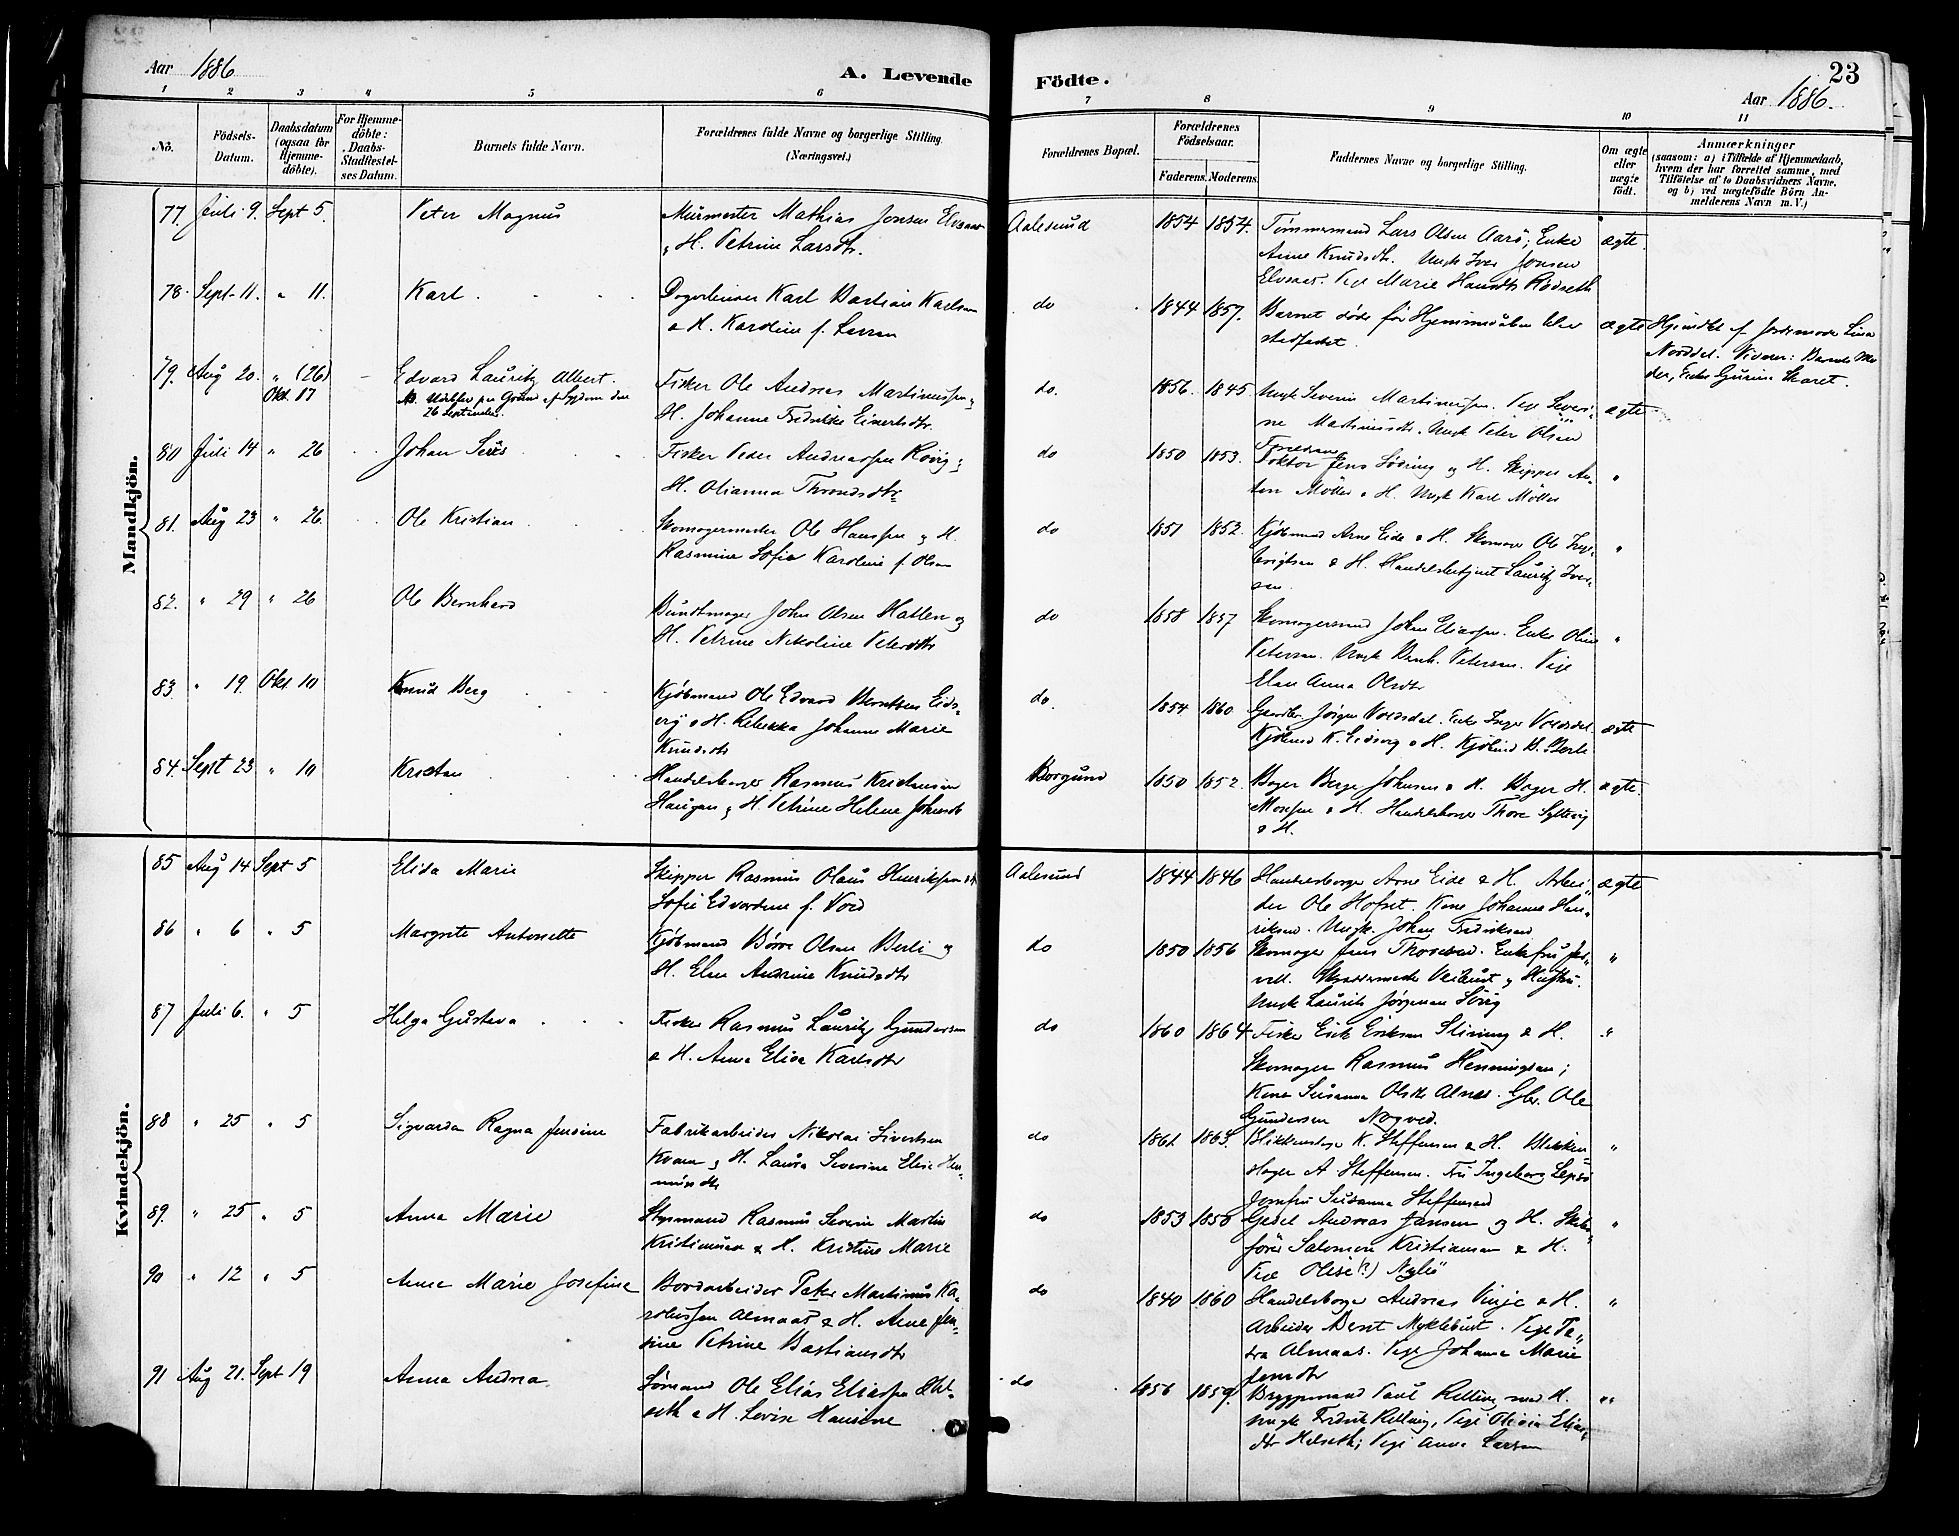 Aar 1886
A. Levende
1 2 3 4 5 6
No.
Födsels-
Datum.
Daabsdatum
(ogsaa for
Hjemme-
döbte).
For Hjemme-
döbte:
Daabs-
Stadfæstel-
ses Datum.
Barnets fulde Navn.
Forældrenes fulde Navne og borgerlige Stilling.
(Næringsvei.)
Mandkjön.
77. Juli 9. Sept 5. Peter Magnus
Murmester Mathias Jonsen Elvsaas
& H. Petrine Larsdtr.
78. Sept 11. " 11. Karl
Karl Bastian Karlsen
& H. Karoline f. Larsen
79. Aug 20. " (26) Edvard Lauritz Albert.
Okt. 17
Nb. Udebler paa Grund af Sygdom den
26 September.
Fisker Ole Andreas Martinussen &
H. Johanne Fredrikke Einertsdtr.
80 Juli 14 " 26 Johan
Fisker Peder Andreassen Rövig &
H. Olianna Throndsdtr
81. Aug 23 " 26. Ole Kristian
Skomagermester Ole Hanssen og H.
Rasmine Sofie Karoline f. Olsen
82. " 29 " 26 Ole Bernhard
Bundtmager John Olsen Hatlen og
H. Petrine Nikoline Petersdtr
83. " 19. Okt 10 Knud Berg
Kjöbmand Ole Edvard Berntsen Eids-
vig & H. Rebekka Johanne Marie
Knudsdtr
84. Sept 23 " 10 Kristian
Handelsborger Rasmus Kristiansen
Haugen & H. Petrine Helene Johnsdtr
Kvindekjön.
85 Aug 14 Sept 5 Elida Marie
Skipper Rasmus Olaus Henriksen & H
Sofie Edvardine f. Vord
86 " 6 " 5 Margrete Antonette
Kjöbmand Börre Olsen Berli og
H. Elen Andrine Knudsdtr
87 Juli 6. " 5 Helga Gustava
Fisker Rasmus Lauritz Gundersen
& H. Anna Elida Karlsdtr
88 " 25 " 5 Sigvarda Ragna Jensine
Fabrikarbeider Nikolai Sivertsen
Kvam & H. Laura Severine Elise Hen-
mundsdtr
89. " 25 " 5 Anna Marie
Styrmand Rasmus Severin Martin
Kristiansen & H. Kristine Marie
90 " 12 " 5 Anne Marie Josefine
Bordarbeider Peter Martinus Ka-
rolussen Almaas & H. Anne Jen-
sine Petrine Bastiansdtr
91 Aug 21. Sept 19 Anna Andrea
Sömand Ole Elias Eliassen
& H. Lovise Hansine
Födte.
23
Aar 1886.
7 8 9 10 11
Forældrenes Bopæl.
Forældrenes
Födselsaar.
Faderens. Moderens.
Faddernes Navne og borgerlige Stilling.
Om ægte
eller
uægte
födt.
Anmærkninger
(saasom: a) i Tilfælde af Hjemmedaab,
hvem der har forrettet samme, med
Tilföielse af to Daabsvidners Navne,
og b) ved uægtefödte Börn An-
melderens Navn m. V.)
Aalesund 1854 1854. Tömmermand Lars Olsen Aarö; Enke ægte.
Anne Knudsdtr. Ungk Iver Jonsen
Elvsaas. Pige Marie Hansdtr Rödseth
do 1844 1857. Barnet döde för Hjemmedaaben blev ægte
stadfæstet.
Hjemdöbt af Jordemoder Lina
Norddal. Vidner: Barnets Mo-
der, Enke Gurine Skaret.
do. 1856. 1845 Ungk Severin Martinussen. Pige Severi- ægte
ne Martinusdtr. Ungk Peter Olsen
Fredsen
do 1850 1853. Doktor Jens Södring og H. Skipper An- "
ton Möller & H. Ungk Karl Möller
do 1851 1852. Kjöbmand Arne Eide & H. Skomager Ole Inge- "
brigtsen & H. Handelsbetjent Lauritz Iver-
sen
do 1858 1857 Skomagersvend Johan Eliassen. Enke Oline "
Petersen. Ungk Bernh. Petersen. Pige
Elen Anna Olsdtr
do. 1854 1860 Gaardbr. Jörgen Voldsdal. Enke Inger Voldsdal ægte
Kjöbmd K. Eidsvig & H. Kjöbmd B. Berli
Borgund 1850 1852. Bager Berge Johnsen & H. Bager H. ægte.
Monsen & H. Handelsborger Thore Syltevig
& H.
Aalesund 1844 1846 Handelsborger Arne Eide & H. Arbei- ægte
der Ole Hofset. Kone Johanne Hen-
riksen. Ungk. Johan Fredriksen
do 1850 1856 Skomager Jens Thoresen. Enkefru "
Skræddermester Veibust og Hustru.
Ungk Laurits Jörgensen Sövig
do 1860 1864 Fisker Erik Eriksen Slinning & H. "
Skomager Rasmus Henningsen;
Kone Susanna Olsdtr Alnes. Gbr. Ole
Gundersen Nogved.
do 1861. 1863. Blikkenslager K. Steffensen & H. Blikken- "
slager A Steffensen. Fru Ingeborg Lepsö
Jomfru Susanna Steffensen
do 1853 1858 Gesel Andreas Jansen og H. Skibs- "
förer Salomon Kristiansen & H.
Pige Olise (?)
do 1840 1860 Handelsborger Andreas Vinje & H. "
Arbeider Bernt Myklebust. Pige Pe-
tra Almaas. Pige Johanne Marie
Jensdtr
do 1856 1859. Bryggemand Paul Relling med H. "
Ungk Fredrik Relling, Pige Olivia Elias-
dtr Helseth; Pige Anne Larsen